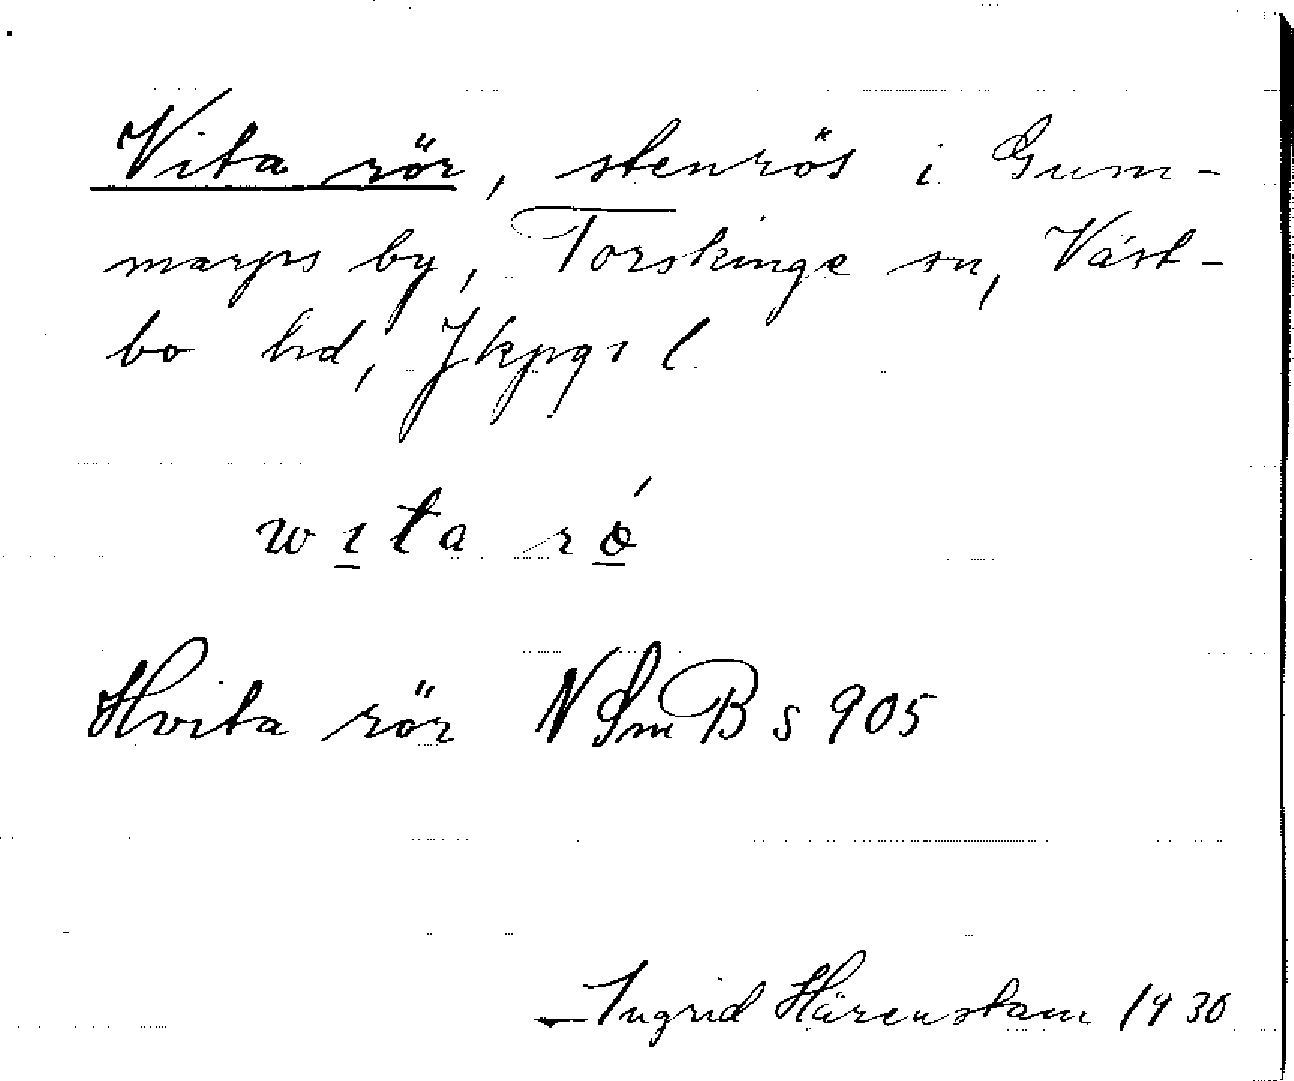 Vita rör, stenrös i Gum-
marps by, Torskinge sn, Väst-
bo hd, Jkpgs l
wita rö́
Hvita rör NSmB s 905
Ingrid Härenstam 1930